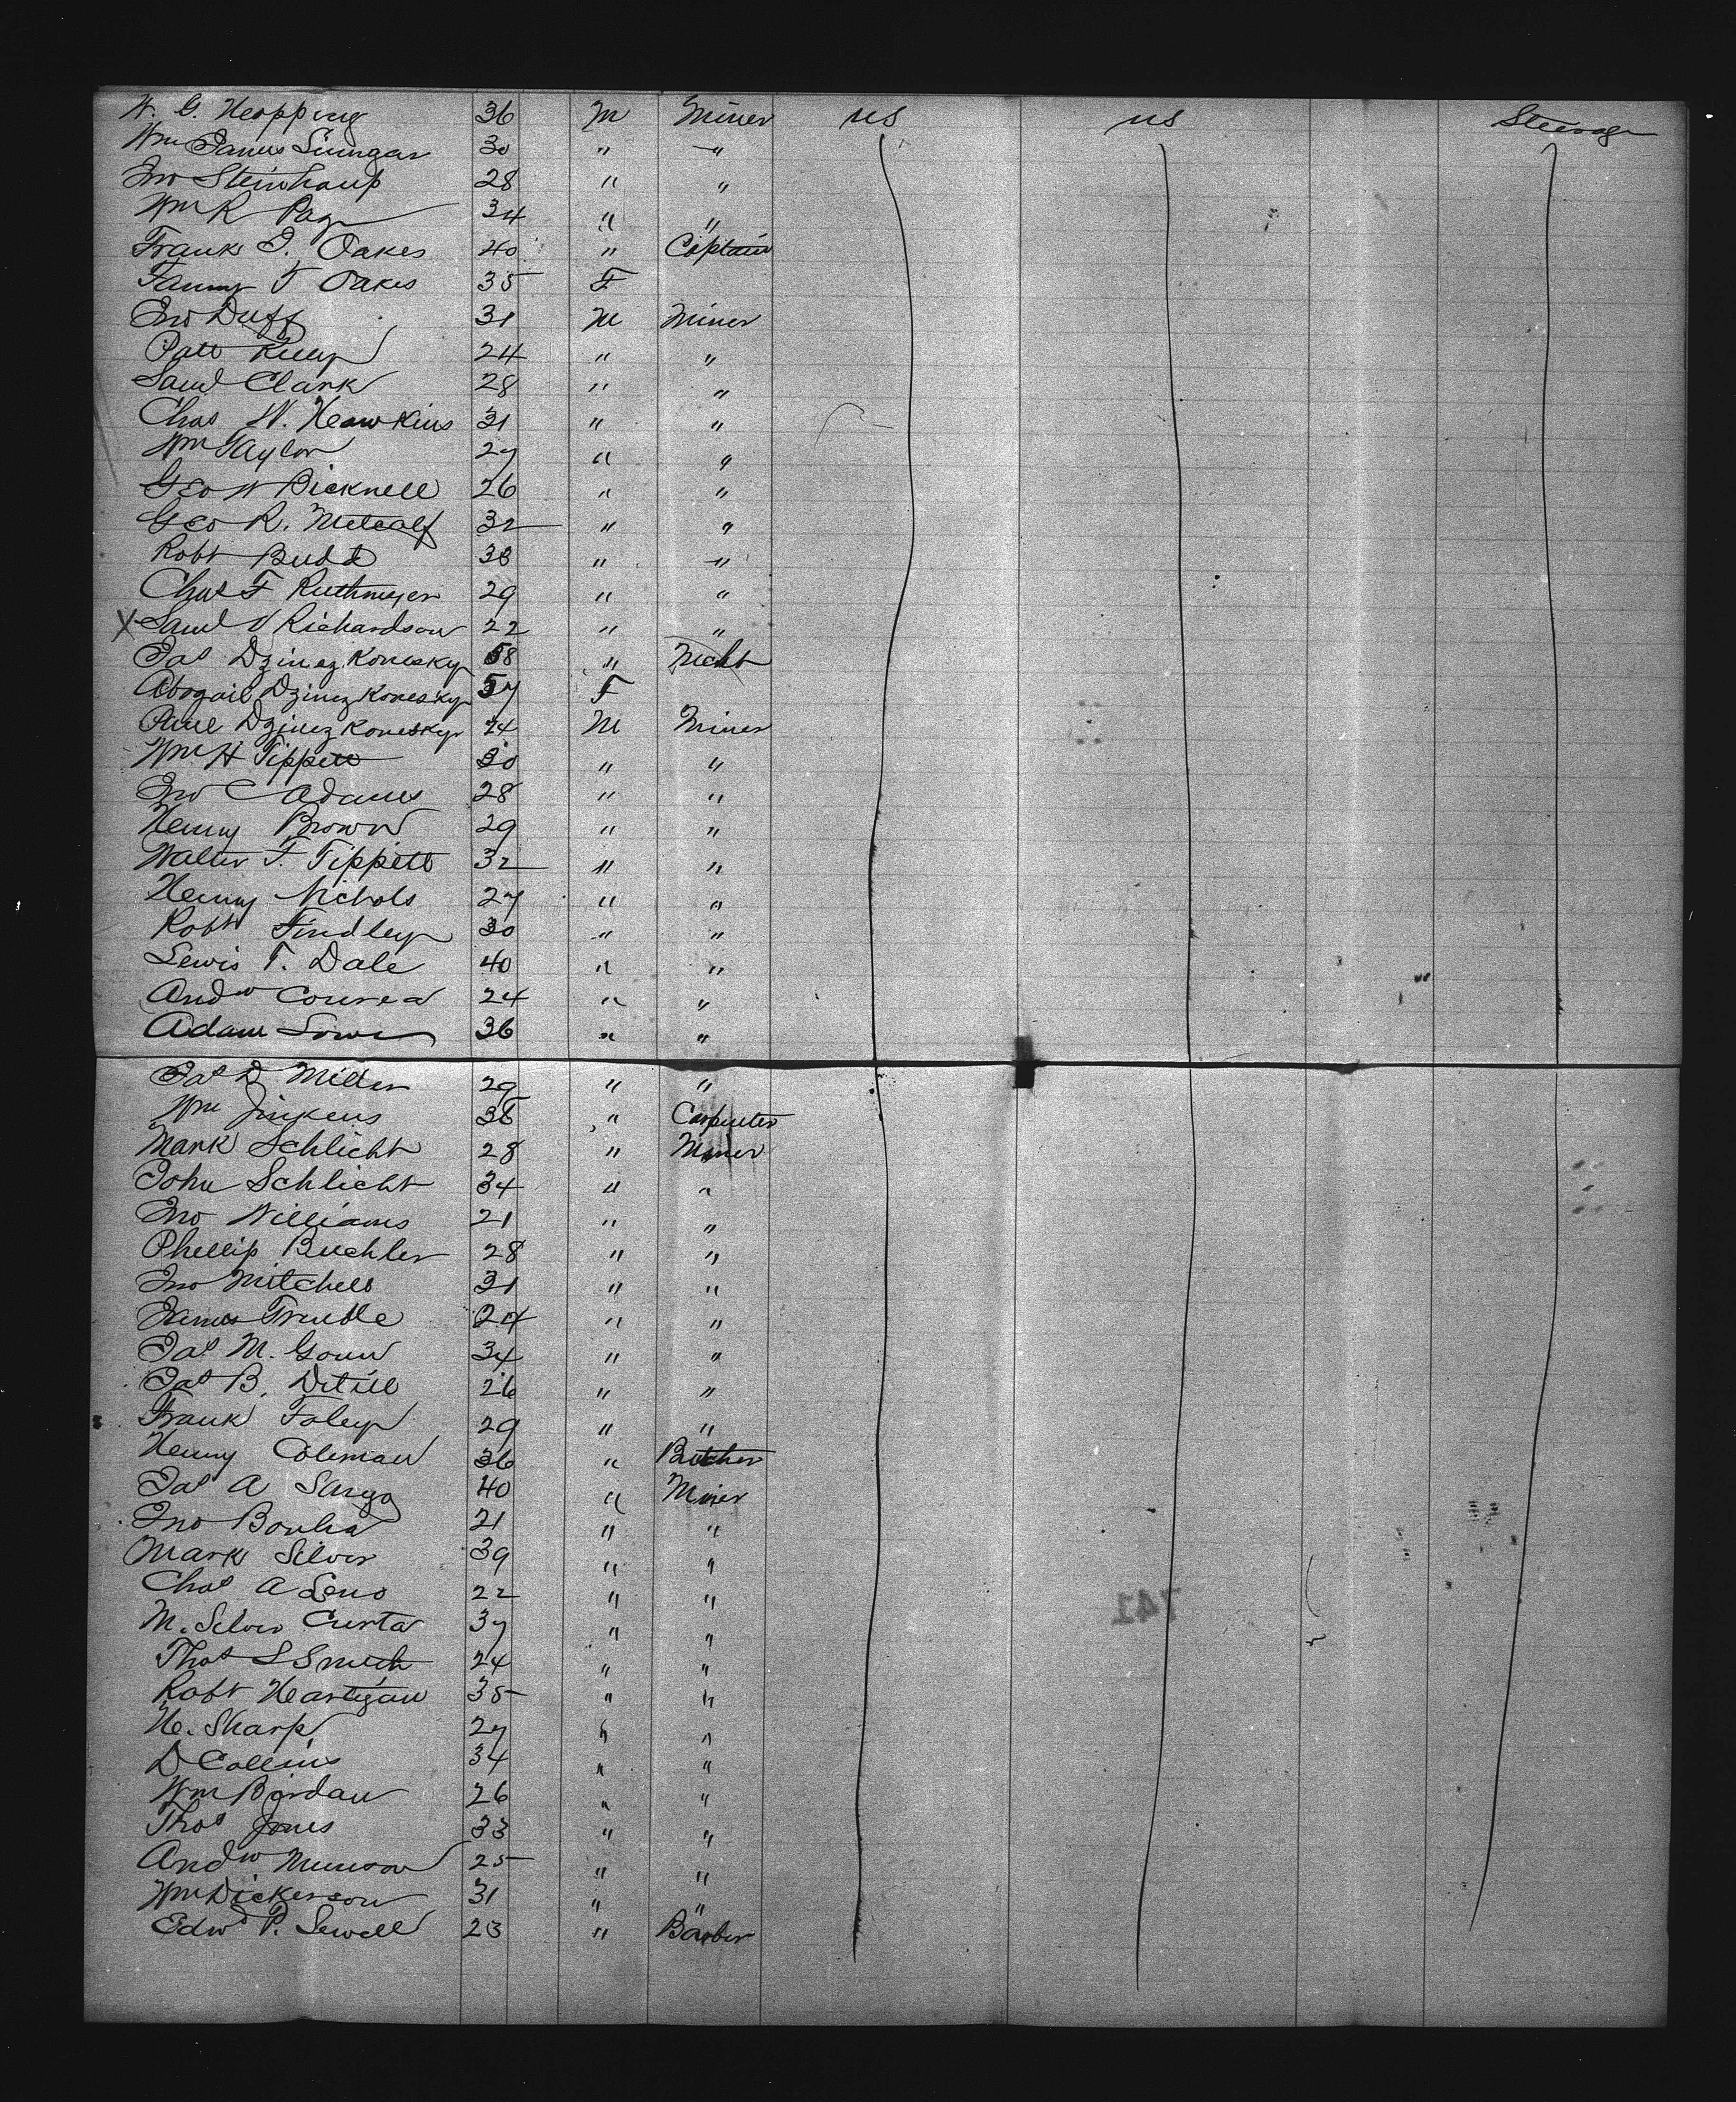 W. G. Hopping 36 M Miner US US Steerage
Wm James 30 " "
Jno Steinhaup 28 " "
Wm R Page 34 " "
Frank J. Oakes 40 " Captain
Fanny T Oakes 35 F
Jno Duff 31 M Miner
Patt Kelly 24 " "
Saml Clark 28 " "
Chas W. Hawkins 31 " "
Wm Taylor 27 " "
Geo W Bicknell 26 " "
Geo R. Metcalf 32 " "
Robt Budd 38 " "
Chas F Ruthmeyer 29 " "
X Saml V Richardson 22 " "
Jas Dzinezkonesky 58 " Mcht
Abogail Dzinezkonesky 57 F
Paul Dzinezkonesky 24 M Miner
Wm H Tippett 30 " "
Jno C Adams 28 " "
Henry Brown 29 " "
Walter F. Tippett 32 " "
Henry Nichols 27 " "
Robt Findley 30 " "
Lewis T. Dale 40 " "
Andw Conrea 24 " "
Adam Lowe 36 " "
Jas D Miller 29 " "
Wm Jinkens 38 " Carpenter
Mark Schlicht 28 " Miner
John Schlicht 34 " "
Jno Williams 21 " "
Phellip Buehler 28 " "
Jno Mitchell 31 " "
James Trudle 24 " "
Jas M. Gouw 34 " "
Jas B. Ditill 26 " "
Frank Foley 29 " "
Henry Coleman 36 " Butcher
Jas A Sargo 40 " Miner
Jno Bouha 21 " "
Mark Silver 39 " "
Chas A Leno 22 " "
M. Silver Curta 37 " "
Thos L Smith 24 " "
Robt Hartigan 35 " "
H. Sharp 27 " "
D Collins 34 " "
Wm Bordan 26 " "
Thos Jones 33 " "
Andw Munson 25 " "
Wm Dickerson 31 " "
Edwd P. Sewell 23 " Barber
741